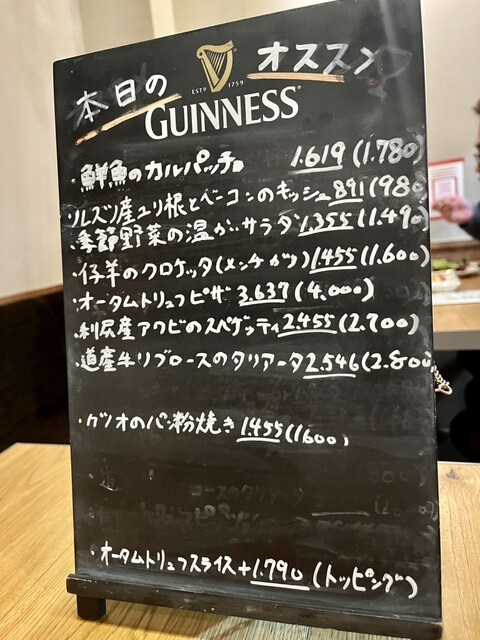 本日の オススメ
ESTD 1759
GUINNESS
・鮮魚のカルパッチョ 1.619(1.780)
・ルスツ産ユリ根とベーコンのキッシュ 891(980)
・季節野菜の温かいサラダ 1.355(1.490)
・仔羊のクロケッタ(メンチカツ) 1455(1.600)
・オータムトリュフピザ 3.637(4.000)
・利尻産アワビのスパゲッティ 2.455(2.700)
・道産牛リブロースのタリアータ 2.546(2.800)
・カツオのパン粉焼き 1.455(1600)
・オータムトリュフスライス+1.790(トッピング)